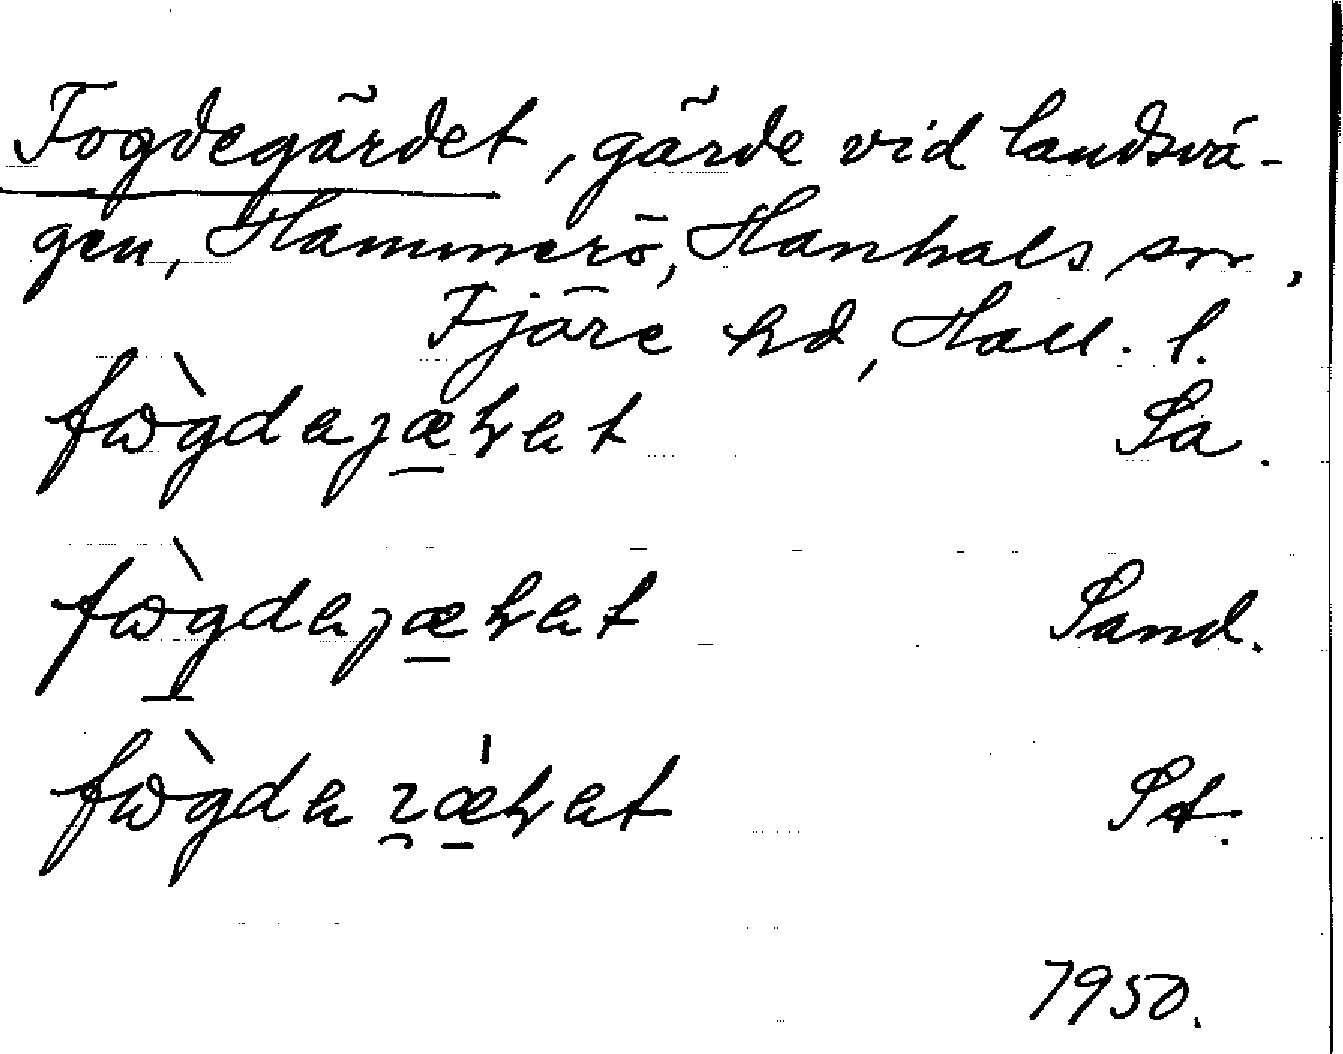 Fogdegärdet, gärde vid landsvä-
gen, Hammerö, Hanhals sn,
Fjäre hd, Hall. l.
fɷ̀gdaȷæ̱ꝛat Sa.
fɷ̱̀gdaȷæ̱ꝛat Sand.
fɷ̀gdaꝛǽ̱ꝛat St.
1950.